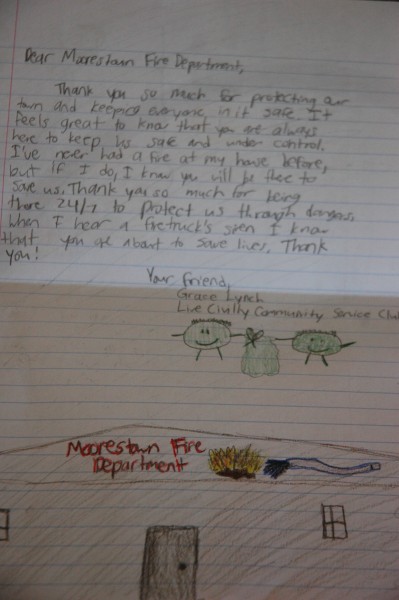 Dear Moorestown Fire Department,
Thank you so much for protecting our
town and keeping everyone in it safe. It
feels great to know that you are always
here to keep us safe and under control.
I've never had a fire at my house before,
but if I do, I know you will be there to
save us. Thank you so much for being
there 24/7 to protect us through dangers.
When I hear a firetruck's siren I know
that you are about to save lives. Thank
you!
Your friend,
Grace Lynch
Live Civilly Community Service Club
Moorestown Fire
Department